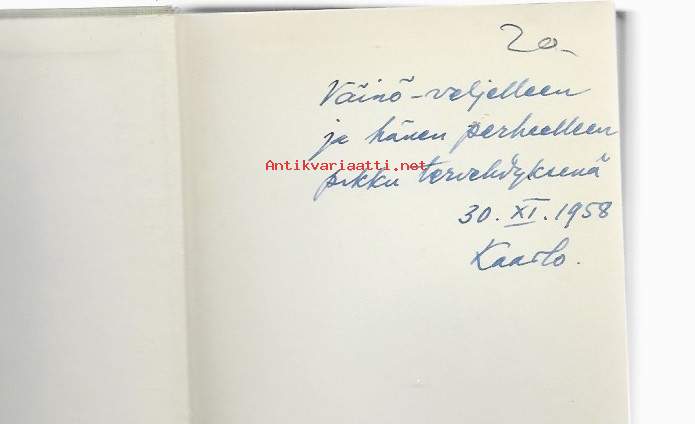 20.-
Väinö-veljelleen
ja hänen perheelleen
Antikvariaatti.net
pikku tervehdyksenä
30.XI.1958
Kaarlo.